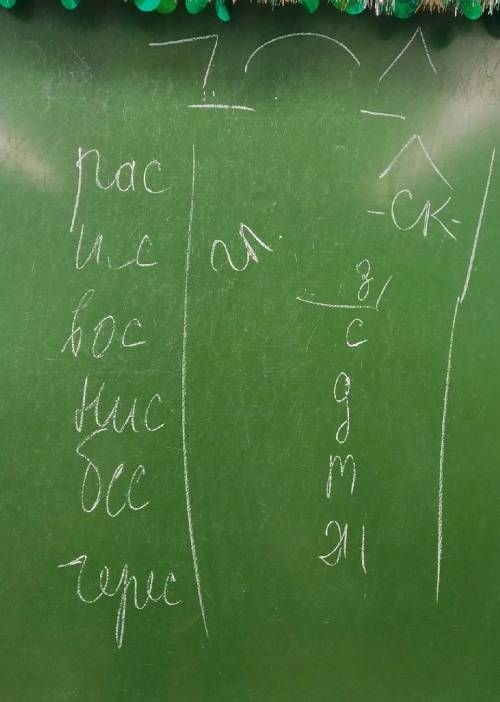 рас
ис
вос
нис
бес
черес
-ск-
з
с
д
т